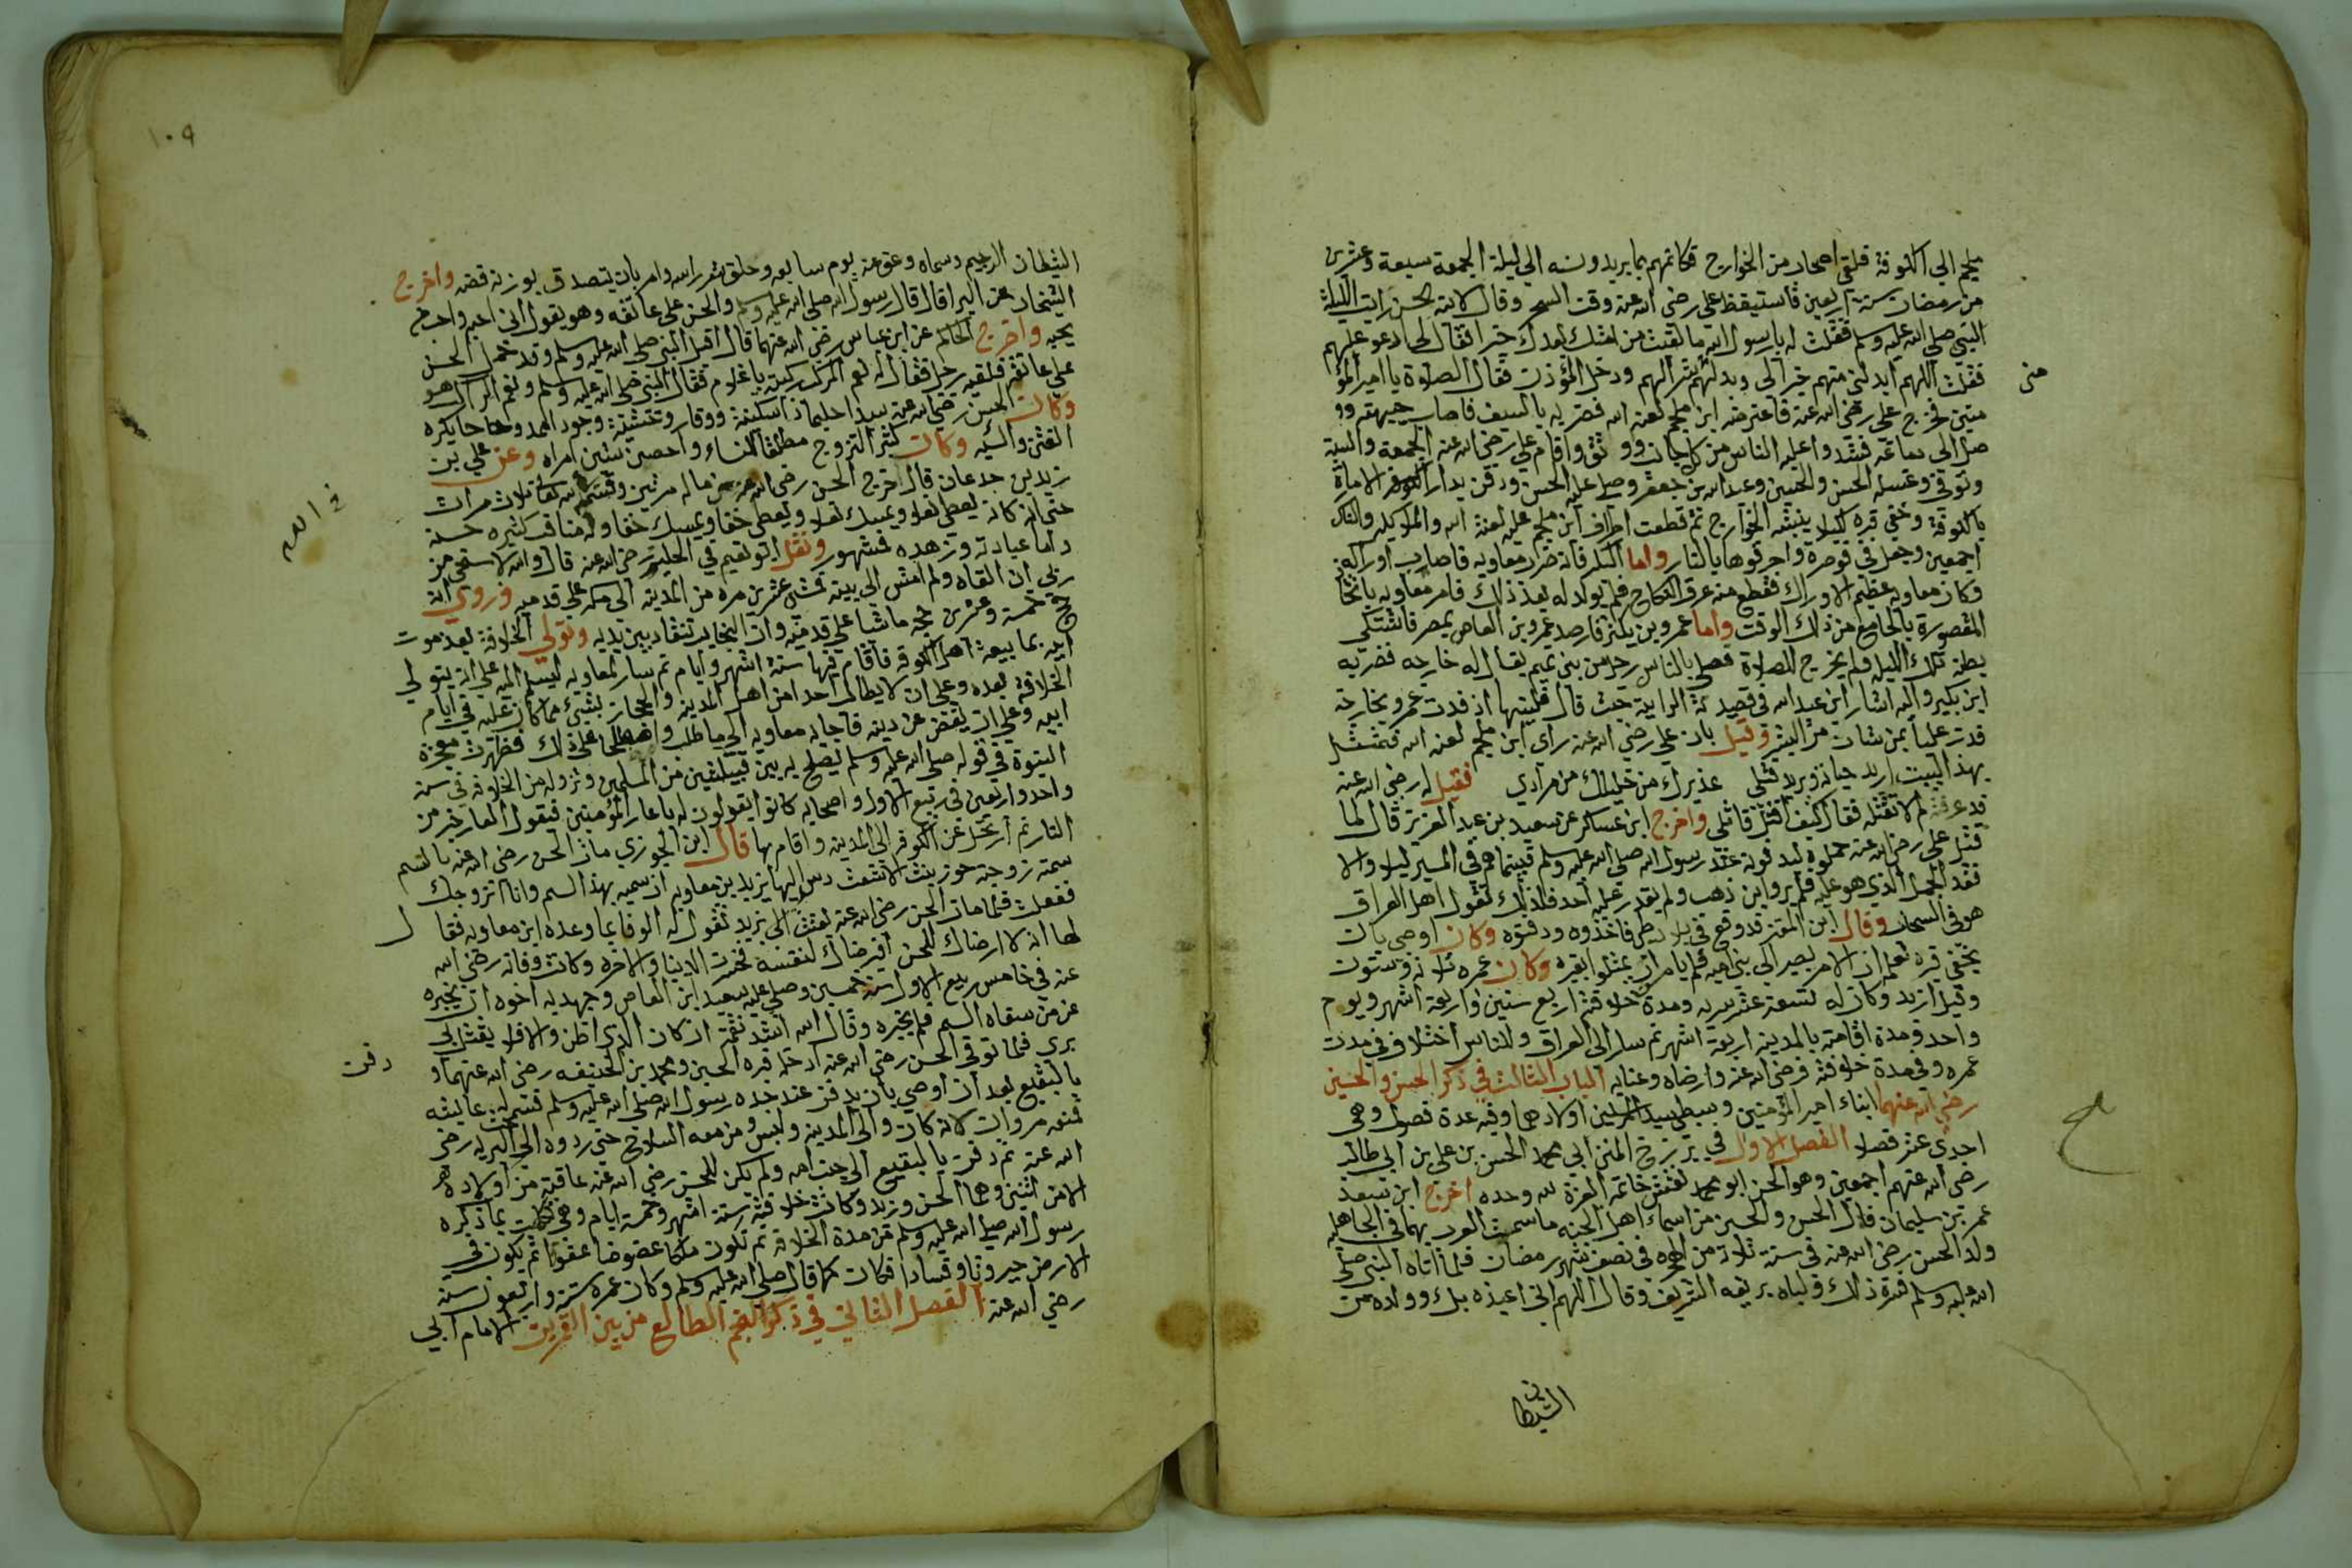 ملجم الى الكوفة فلقي اصحابه من الخوارج فكاتمهم بما يريدونه الى ليلة الجمعة سبعة وعشرين
من رمضان سنة اربعين فاستيقظ على رضى الله عنه وقت السحر وقال لابنه الحسن رايت الليلة
النبي صلى الله عليه وسلم فقلت له يارسول الله ما لقيت من امتك بعدك خيرا فقال لى ادعو عليهم
فقلت اللهم ابدلنى منهم خيرا لى وبدلهم شرا لهم ودخل المؤذن فقال الصلوة يا امير المؤ
منى
منين فخرج على رضى الله عنه فاعترضه ابن ملجم لعنه الله فضربه بالسيف فاصاب جبهته وو
صل الى دماغه فشد واعليه الناس من كل جانب ووثق واقام على رضى الله عنه الجمعة والسبت
وتوفى وغسله الحسن والحسين وعبد الله بن جعفر وصلى عليه الحسن ودفن بدار الامارة
بالكوفة وخفى قبره ليلا ينبشه الخوارج ثم قطعت اطراف ابن ملجم عليه لعنة الله والملايكه والناس
اجمعين وجعل فى قوصرة واحرقوها بالنار واما البكر فانه ضرب معاويه فاصاب اوراكه
وكان معاويه عظيم الاوراك فقطع منه عرق النكاح فلم يولد له بعد ذلك فامر معاويه باتخاذ
المقصورة بالجامع من ذلك الوقت واما عمرو بن بكر فارصد عمرو بن العاص بمصر فاشتكى
بطنه تلك الليل ولم يخرج للصلاة فصلى بالناس رجل من بنى تميم يقال له خارجه فضربه
ابن بكير واليه اشار ابن عبد الله فى قصيدته حيث قال فليتها اذ فدت عمرو بخارجة
فدت عليا بمن شات من البشر وقيل بان على رضى الله عنه راى ابن ملجم لعنه الله فتمثل
بهذا البيت اريد حياته ويريد قتلى عذيرك من خليلك من مرادى فقيل له رضى الله عنه
قد عرفته لم لا تقتله فقال كيف اقتل قاتلى واخرج ابن عساكر عن سعيد بن عبد العزيز قال لما
قتل على رضى الله عنه حملوه ليدفنوه عند رسول الله صلى الله عليه وسلم فبينما هم فى المسير ليلا والا
فقد الجمل الذى هو عليه فلم يرو اين ذهب ولم يقدر عليه احد فلذلك تقول اهل العراق
هو فى السحاب وقال ابن المقتر قد وقع فى بلاد طى فاخذوه ودفنوه وكان اوصى بان
يخفى قبره لعلمه ان الامر يصير الى بنى اميه فلم يامن ان يمثلوا بقبره وكان عمره ثلاثه وستون
وقيل ازيد وكان له تسعة عشر سريه ومدة خلافته اربع سنين واربعة اشهر ويوم
واحد ومدة اقامته بالمدينه اربعة اشهر ثم سار الى العراق وللناس اختلاف فى مدت
عمره وفى مدة خلافته فرضى الله عنه وارضاه وعنابه الباب الثالث فى ذكر الحسن والحسين
رضى الله عنهما ابناء امير المؤمنين وسبطى سيد المرسلين اولادهما وفيه عدة فصول وهى
احدى عشر فصلا الفصل الاول فى ابى محمد الحسن بن على بن ابى طالب
رضى الله عنهم اجمعين وهو الحسن ابو محمد نقش خاتمه العزة لله وحده اخرج ابن سعد
عمر بن سليمان قال الحسن والحسين من اسماء اهل الجنه ما سميت العرب بهما فى الجاهليه
ولد الحسن رضى الله عنه فى سنة ثلاث من الهجره فى نصف شهر رمضان فلما اتاه النبى صلى
الله عليه وسلم فسره ذلك ولباه بريقه الشريف وقال اللهم انى اعيذه بك وولده من
الشيطان
١٠٩
الشيطان الرجيم وسماه وعق عنه يوم سابعه وحلق شعر راسه وامر بان يتصدق بوزنه فضه واخرج
الشيخان عن البرا قال قال رسول الله صلى الله عليه وسلم والحسن على عاتقه وهو يقول انى احبه واحب من
يحبه واخرج الحاكم عن ابن عباس رضى الله عنهما قال اقبل النبى صلى الله عليه وسلم وقد حمل الحسن
على عاتقه فلقيه رجل فقال له نعم المركب ركبت ياغلام فقال النبى صلى الله عليه وسلم ونعم الراكب هو
وكان الحسن رضى الله عنه سيدا حليما ذا سكينة ووقار وحشمة وجود ممدوحا يكره
الفتن والسيف وكان كثير التزوج مطلقا للنساء واحصن ستين امراه وعن على بن
زيد بن جدعان قال خرج الحسن رضى الله عنه من ماله مرتين وقسم لله تعالى ثلاث مرات
فى الله
حتى انه كان يعطى نعلا ويمسك نعلا ويعطى خفا ويمسك خفا وله مناقب كثيره حسنه
واما عبادته وزهده فمشهور ونقل ابو نعيم فى الحليه رضى الله عنه قال والله لاستحى من
ربى ان القاه ولم امش الى بيته فمشى عشرين مره من المدينه الى مكه على قدميه وروى انه
حج خمسة وعشرين حجه ماشيا على قدميه وان النجايب تنقاد بين يديه وتولى الخلافة بعد موت
ابيه بمابيعت اهل الكوفه فاقام فيها ستة اشهر وايام ثم سار لمعاويه ليسلم اليه على انه يتولى
الخلافة بعده وعلى ان لا يطالب احد من اهل المدينه والحجاز بشئ مما كان عليه فى ايام
ابيه وعلى ان يقضى عن دينه فاجابه معاويه الى ما طلب واصطلحا على ذلك فظهرت معجزة
النبوة فى قوله صلى الله عليه وسلم يصلح به بين فيئتين من المسلمين ونزوله من الخلافه فى سنة
واحد واربعين فى ربيع الاول واصحابه كانوا يقولون له ياعار المؤمنين فيقول العار خير من
النار ثم ارتحل عن الكوفه الى المدينه واقام بها قال ابن الجوزى مات الحسن رضى الله عنه بالسم
سمته زوجته بنت الاشعث دس اليها يزيد بن معاويه ان سميه بهذا السم وانا اتزوجك
ففعلت فلما مات الحسن رضى الله عنه بعثت الى يزيد تقول له الوفا بما وعده ابن معاويه فقال
لها انه لا ارضاك للحسن افترضاك لنفسه فخسرت الدنيا والاخره وكانت وفاته رضى الله
عنه فى خامس ربيع الاول سنة خمسين وصلى عليه سعيد ابن العاص وجهد به اخوه ان يخبره
عن من سقاه السم فلم يخبره وقال الله اشد نقمة ان كان الذى اظن والا فلا يقتل بى
برى فلما توفى الحسن رضى الله عنه ادخله قبره الحسين ومحمد بن الحنيفه رضى الله عنهما و
دفن
بالبقيع بعد ان اوصى بان يدفن عند جده رسول الله صلى الله عليه وسلم عايشه
فمنعه مروان لانه كان والى المدينه ولبس ومن معه السلاح حتى ردوه الى البريه رضى
الله عنه ثم دفن بالبقيع الى جنب امه ولم يكن للحسن رضى الله عنه عاقبة من اولاده
الا من اثنين وهما الحسن وزيد وكانت خلافته ستة اشهر وخمسة ايام وهى بما ذكره
رسول الله صلى الله عليه وسلم من مدة الخلافه ثم تكون ملكا عضوضا ثم يكون فى
الارض جبروتا وفسادا فكان كما قال صلى الله عليه وسلم وكان عمره ستة واربعون سنة
رضى الله عنه الفصل الثانى فى ذكر النجم الطالع من بين القمرين الامام ابى